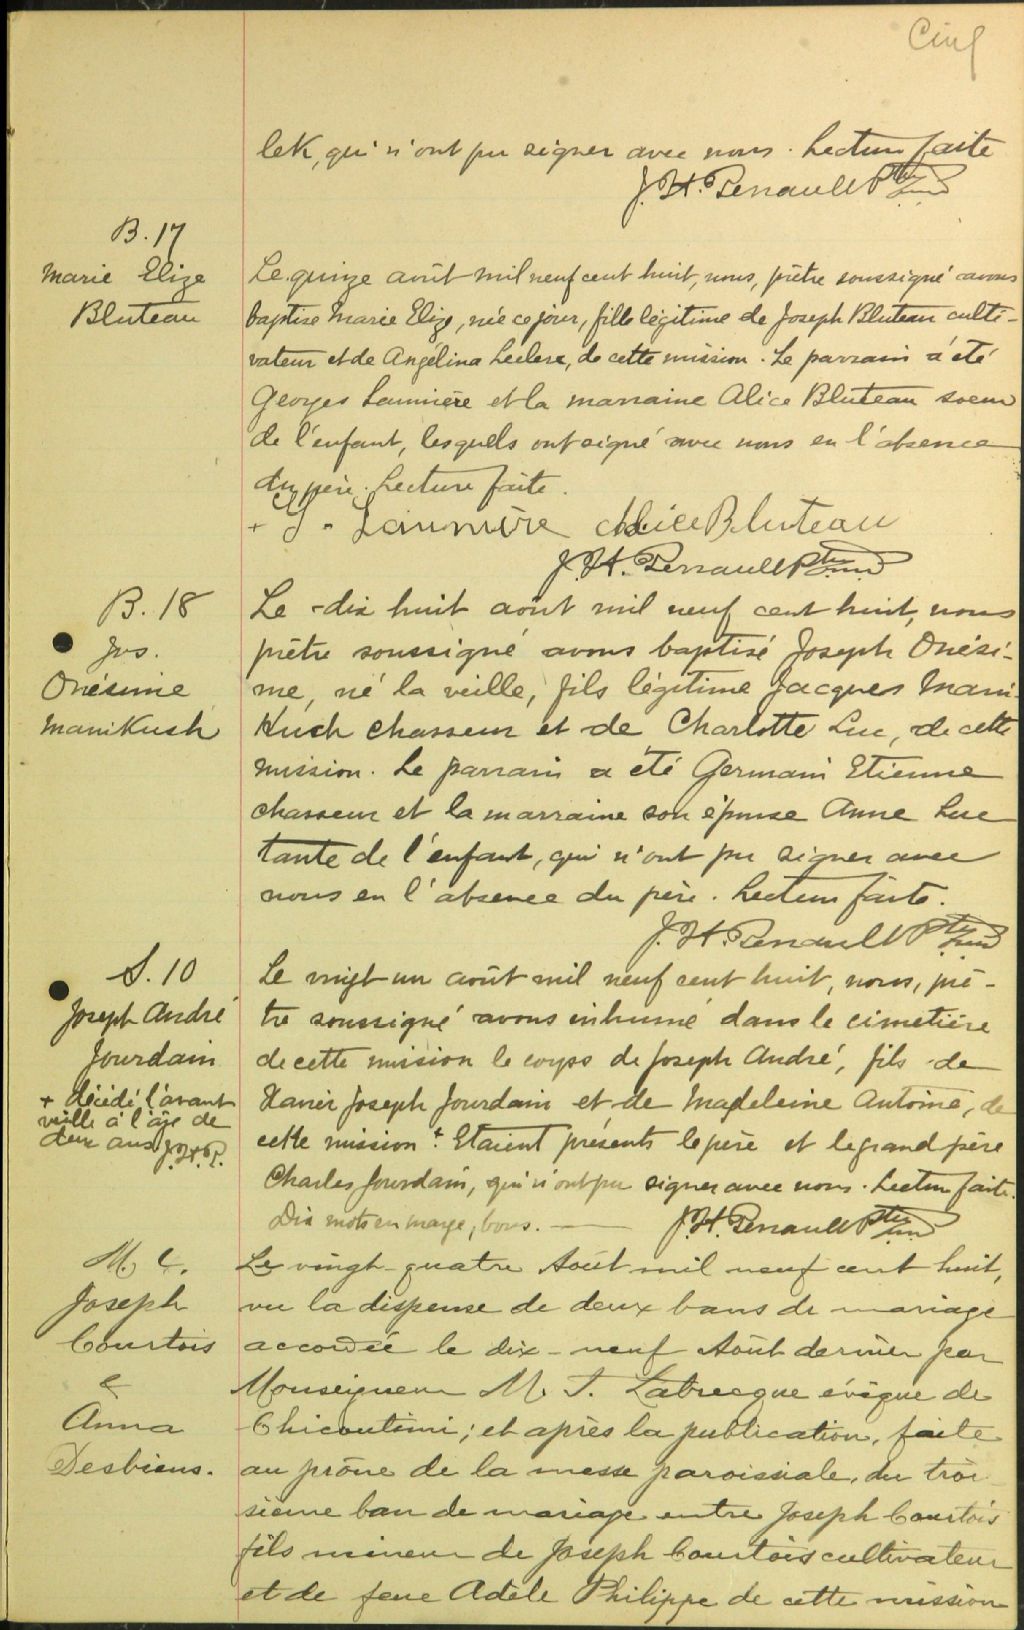 Cinq
lek, qui n'ont pu signer avec nous. Lecture faite
J. H. Perrault Ptre
B. 17
Marie Elize
Bluteau
Le quinze août mil neuf cent huit, nous, prêtre soussigné avons
baptisé Marie Elize, née ce jour, fille légitime de Joseph Bluteau culti-
vateur et de Angélina Leclerc, de cette mission. Le parrain a été
Georges Launière et la marraine Alice Bluteau soeur
de l'enfant, lesquels ont signé avec nous en l'absence
du père. Lecture faite.
+ G. Launière Alice Bluteau
J. H. Perrault Ptre
B. 18
Jos.
Onésime
Manikush
Le dix huit août mil neuf cent huit, nous
prêtre soussigné avons baptisé Joseph Onési-
me, né la veille, fils légitime Jacques Mani-
Kush chasseur et de Charlotte Luc, de cette
mission. Le parrain a été Germain Etienne
chasseur et la marraine son épouse Anne Luc
tante de l'enfant, qui n'ont pu signer avec
nous en l'absence du père. Lecture faite.
J. H. Perrault Ptre
S. 10
Joseph André
Jourdain
+ décédé l'avant
veille à l'âge de
deux ans J.H.P.
Le vingt un août mil neuf cent huit, nous, prê-
tre soussigné avons inhumé dans le cimetière
de cette mission le corps de Joseph André, fils de
Xavier Joseph Jourdain et de Madeleine Antoine, de
cette mission +. Etaient présents le père et le grand père
Charles Jourdain, qui n'ont pu signer avec nous. Lecture faite.
Dix mots en marge, bons. J. H. Perrault Ptre
M. C.
Joseph
Courtois
&
Anna
Desbiens.
Le vingt-quatre Août mil neuf cent huit,
vu la dispense de deux bans de mariage
accordée le dix-neuf Août dernier par
Monseigneur M. T. Labrecque évêque de
Chicoutimi; et après la publication, faite
au prône de la messe paroissiale, du troi-
sième ban de mariage entre Joseph Courtois
fils mineur de Joseph Courtois cultivateur
et de feue Adèle Philippe de cette mission